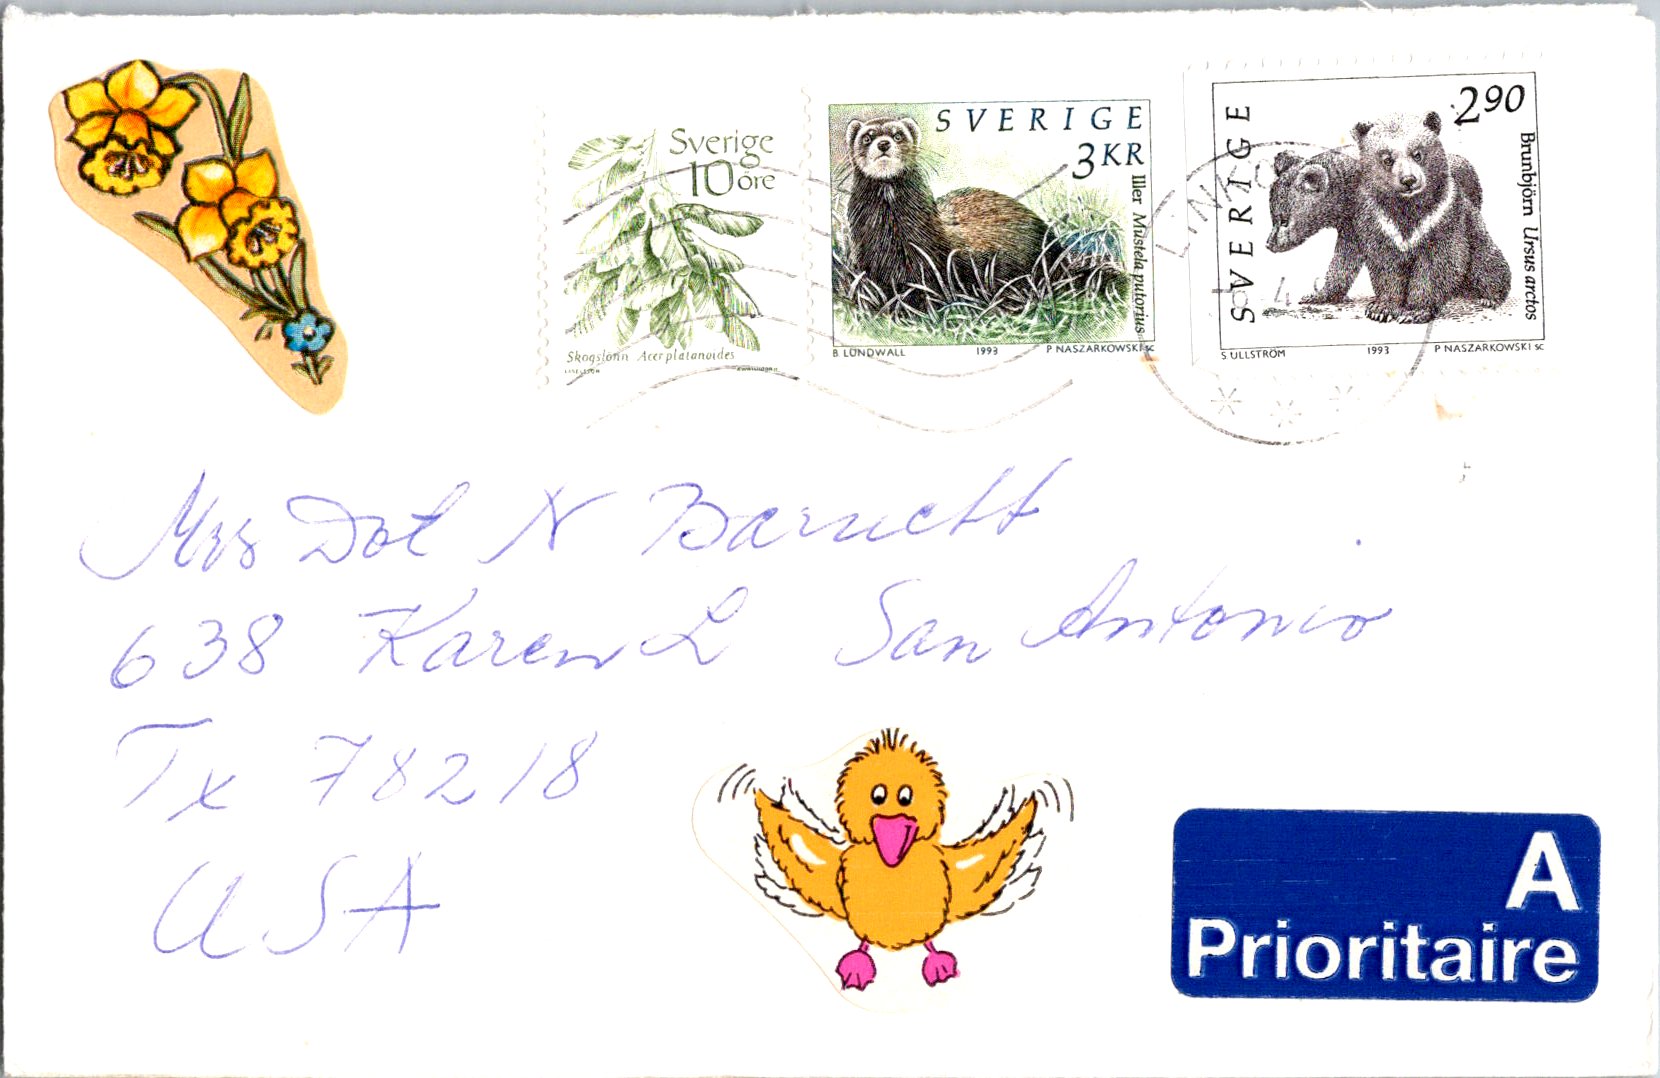 Sverige
10 öre
Skogslönn Acer platanoides
SVERIGE
3 KR
Iller Mustela putorius
B LUNDWALL 1993 P NASZARKOWSKI SC
SVERIGE
2 90
Brunbjörn Ursus arctos
S ULLSTRÖM 1993 P NASZARKOWSKI SC
Mrs Dot N Barnett
638 Karen L San Antonio
Tx 78218
USA
A
Prioritaire